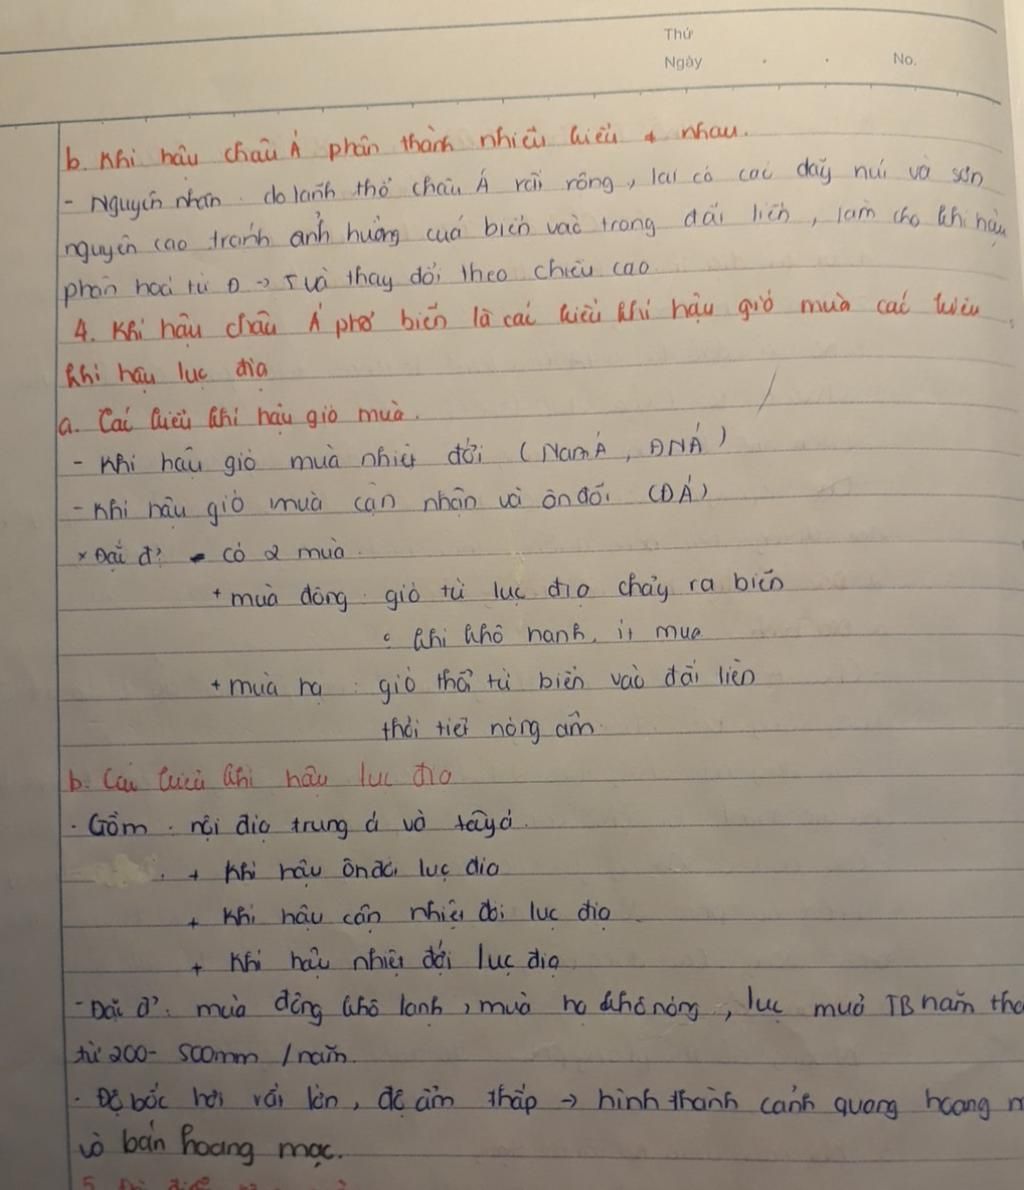 Thứ
Ngày . . No.
b. Khí hậu châu Á phân thành nhiều kiểu ≠ nhau.
- Nguyên nhân . do lãnh thổ châu Á rất rộng, lại có các dãy núi và sơn
nguyên cao tránh ảnh hưởng của biển vào trong đất liền, làm cho khí hậu
phân hoá từ Đ → T và thay đổi theo chiều cao
4. Khí hậu châu Á phổ biến là các kiểu khí hậu gió mùa các kiểu
khí hậu lục địa
a. Các kiểu khí hậu gió mùa.
- Khí hậu gió mùa nhiệt đới (Nam Á, ĐNÁ)
- Khí hậu gió mùa cận nhiện và ôn đới (ĐÁ)
* Đặc đ²: - có 2 mùa.
+ mùa đông : gió từ lục địa chảy ra biển
khí khô hanh, ít mưa
+ mùa hạ : gió thổi từ biển vào đất liền
thời tiết nóng ẩm.
b. Các kiểu khí hậu lục địa
. Gồm : nội địa trung á và tây á.
+ Khí hậu ôn đới lục địa
+ Khí hậu cận nhiệt đới lục địa
+ Khí hậu nhiệt đới lục địa
- Đặc đ²: mùa đông khô lạnh, mùa hạ khô nóng, lục mưa TB năm
từ 200- 500mm /năm.
. Độ bốc hơi rất lớn, độ ẩm thấp → hình thành cảnh quang hoang
và bán hoang mạc.
5.